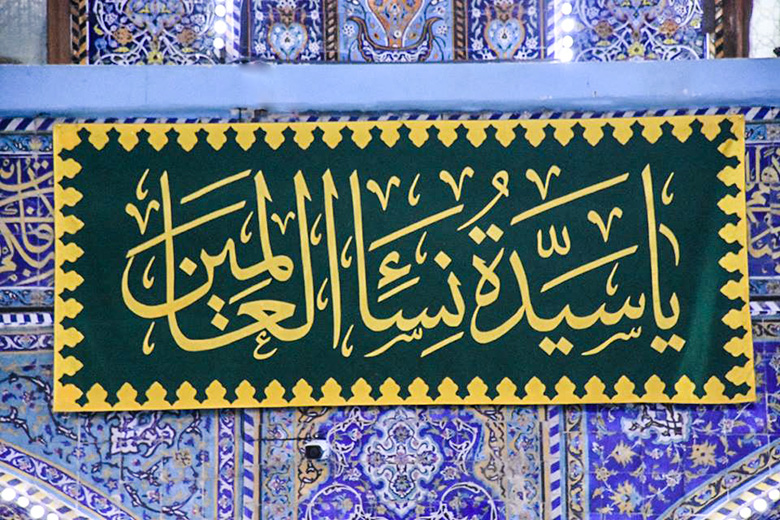 يا سَيِّدَةُ نِسَآءِ العَالَمِين